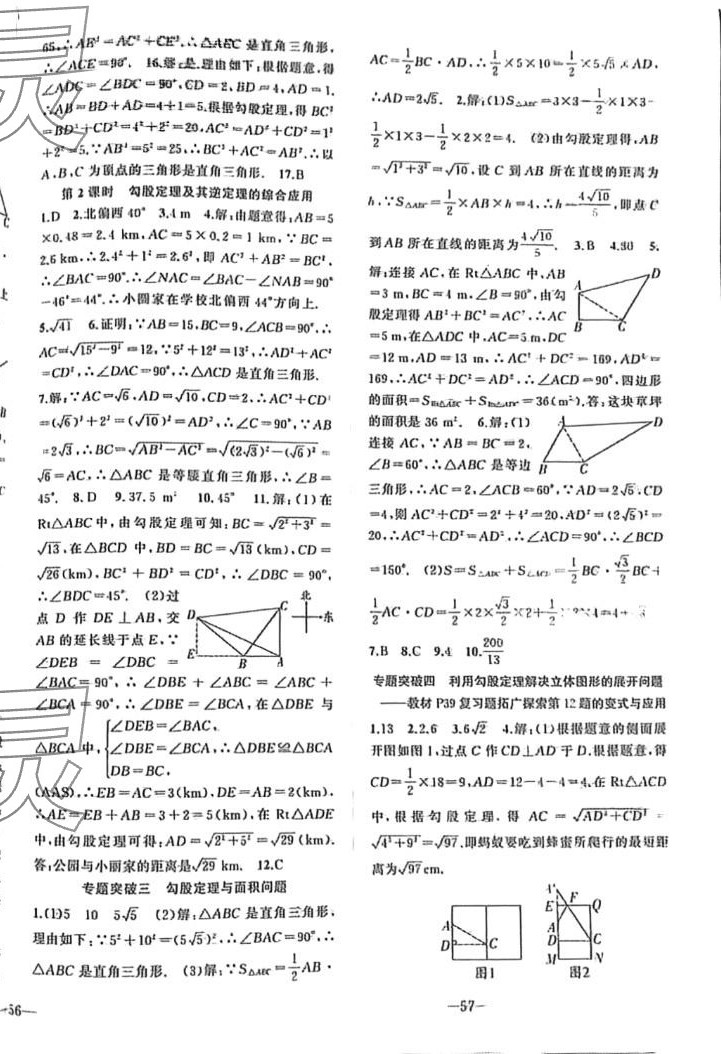 65,∴AE²=AC²+CE²,∴△AEC 是直角三角形,
∴∠ACE=90°. 16.解:是.理由如下:根据题意,得
∠ADC=∠BDC=90°,CD=2,BD=4,AD=1,
∴AB=BD+AD=4+1=5.根据勾股定理,得 BC²
=BD²+CD²=4²+2²=20,AC²=AD²+CD²=1²
+2²=5.∵AB²=5²=25,∴BC²+AC²=AB²,∴以
A、B、C 为顶点的三角形是直角三角形. 17.B
第 2 课时 勾股定理及其逆定理的综合应用
1.D 2.北偏西 40° 3.4 m 4.解:由题意得:AB=5
×0.48=2.4 km,AC=5×0.2=1 km,∵BC=
2.6 km,∴2.4²+1²=2.6²,即 AC²+AB²=BC²,
∴∠BAC=90°.∴∠NAC=∠BAC-∠NAB=90°
-46°=44°.∴小圆家在学校北偏西 44°方向上.
5.√41 6.证明:∵AB=15,BC=9,∠ACB=90°,∴
AC=√(15²-9²)=12,∵5²+12²=13²,∴AD²+AC²
=CD²,∴∠DAC=90°,∴△ACD 是直角三角形.
7.解:∵AC=√6,AD=√10,CD=2,∴AC²+CD²
=(√6)²+2²=(√10)²=AD²,∴∠C=90°,∵AB
=2√3,∴BC=√(AB²-AC²)=√((2√3)²-(√6)²)=
√6=AC,∴△ABC 是等腰直角三角形,∴∠B=
45°. 8.D 9.37.5 m² 10.45° 11.解:(1)在
Rt△ABC中,由勾股定理可知:BC=√(2²+3²)=
√13,在△BCD 中,BD=BC=√13(km),CD=
√26(km),BC²+BD²=CD²,∴∠DBC=90°,
∴∠BDC=45°. (2)过
点 D 作 DE⊥AB,交
AB 的延长线于点 E,∵
∠DEB=∠DBC=
∠BAC=90°,∴∠DBE+∠ABC=∠ABC+
∠BCA=90°,∴∠DBE=∠BCA,在△DBE 与
△BCA 中,{∠DEB=∠BAC,
∠DBE=∠BCA,∴△DBE≌△BCA
DB=BC,
(AAS),∴EB=AC=3(km),DE=AB=2(km),
∴AE=EB+AB=3+2=5(km),在 Rt△ADE
中,由勾股定理可得:AD=√(2²+5²)=√29(km).
答:公园与小丽家的距离是√29 km. 12.C
专题突破三 勾股定理与面积问题
1.(1)5 10 5√5 (2)解:△ABC 是直角三角形,
理由如下:∵5²+10²=(5√5)²,∴∠BAC=90°,∴
△ABC 是直角三角形. (3)解:∵S△ABC=1/2 AB·
D C 北 东
E B A
—56—
AC=1/2 BC·AD,∴1/2×5×10=1/2×5√5×AD,
∴AD=2√5. 2.解:(1)S△ABC=3×3-1/2×1×3-
1/2×1×3-1/2×2×2=4. (2)由勾股定理得,AB
=√(1²+3²)=√10,设 C 到 AB 所在直线的距离为
h,∵S△ABC=1/2×AB×h=4,∴h=4√10/5,即点 C
到 AB 所在直线的距离为4√10/5. 3.B 4.30 5.
解:连接 AC,在 Rt△ABC 中,AB
=3 m,BC=4 m,∠B=90°,由勾
股定理得 AB²+BC²=AC²,∴AC
=5 m,在△ADC 中,AC=5 m,DC
=12 m,AD=13 m,∴AC²+DC²=169,AD²=
169,∴AC²+DC²=AD²,∴∠ACD=90°,四边形
的面积=SRt△ABC+SRt△ACD=36(m²).答:这块草坪
的面积是 36 m². 6.解:(1)
连接 AC,∵AB=BC=2,
∠B=60°,∴△ABC 是等边
三角形,∴AC=2,∠ACB=60°,∵AD=2√5,CD
=4,则 AC²+CD²=2²+4²=20,AD²=(2√5)²=
20,∴AC²+CD²=AD²,∴∠ACD=90°,∴∠BCD
=150°. (2)S=S△ABC+S△ACD=1/2 BC·√3/2 BC+
1/2 AC·CD=1/2×2×√3/2×2+1/2×2×4=4+√3
7.B 8.C 9.4 10.200/13
A D
B C
A D
B C
专题突破四 利用勾股定理解决立体图形的展开问题
——教材 P39 复习题拓广探索第 12 题的变式与应用
1.13 2.2.6 3.6√2 4.解:(1)根据题意的侧面展
开图如图 1,过点 C 作 CD⊥AD 于 D.根据题意,得
CD=1/2×18=9,AD=12-4-4=4,在 Rt△ACD
中,根据勾股定理,得 AC=√(AD²+CD²)=
√(4²+9²)=√97,即蚂蚁要吃到蜂蜜所爬行的最短距
离为√97cm.
A
D C
图1
A'
E F Q
A
D C
M N
图2
—57—